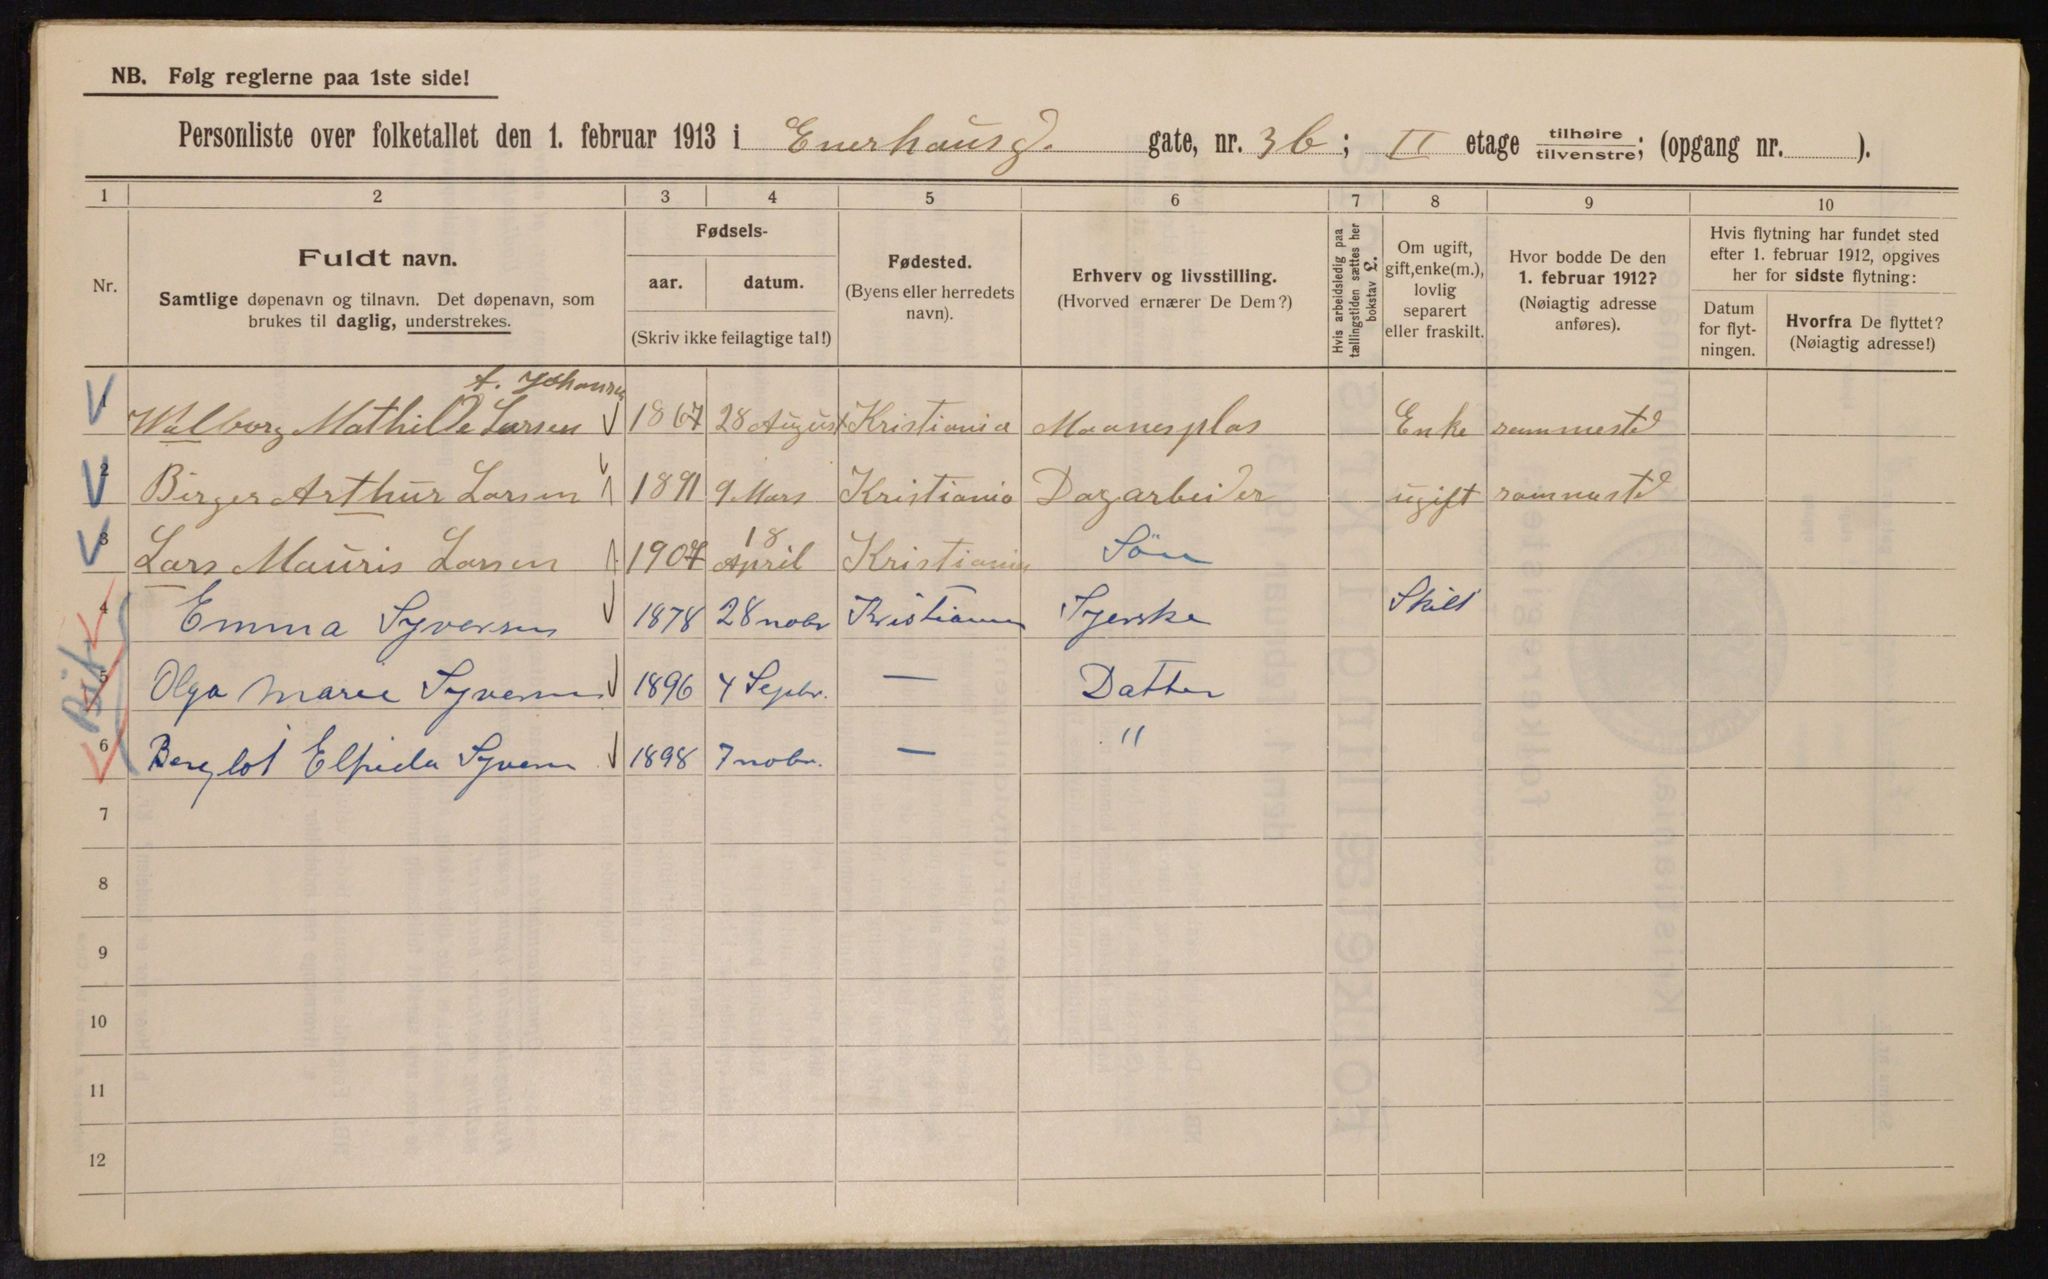 NB. Følg reglerne paa 1ste side!
Personliste over folketallet den 1. februar 1913 i Enerhausg. gate, nr. 3b; II etage tilhøire/tilvenstre; (opgang nr. ).
1 2 3 4 5 6 7 8 9 10
Nr.
Fuldt navn.
Samtlige døpenavn og tilnavn. Det døpenavn, som
brukes til daglig, understrekes.
Fødsels-
aar. datum.
(Skriv ikke feilagtige tal!)
Fødested.
(Byens eller herredets
navn).
Erhverv og livsstilling.
(Hvorved ernærer De Dem?)
Hvis arbeidsledig paa
tællingstiden sættes her
bokstav L.
Om ugift,
gift, enke(m.),
lovlig
separert
eller fraskilt.
Hvor bodde De den
1. februar 1912?
(Nøiagtig adresse
anføres).
Hvis flytning har fundet sted
efter 1. februar 1912, opgives
her for sidste flytning:
Datum
for flyt-
ningen.
Hvorfra De flyttet?
(Nøiagtig adresse!)
f. Johansen
1 Walborg Mathilde Larsen 1867 28 August Kristiania Maanesplas Enke sammested
2 Birger Arthur Larsen 1891 9 Mars Kristiania Dagarbeider ugift sammested
3 Lars Mauris Larsen 1907 18 April Kristiania Søn
4 Emma Syversen 1878 28 nobr Kristiania Syerske Skilt
5 Olga Marie Syversen 1896 4 Sepbr. — Datter
6 Bergliot Elfrida Syversen 1898 7 nobr. — "
7
8
9
10
11
12